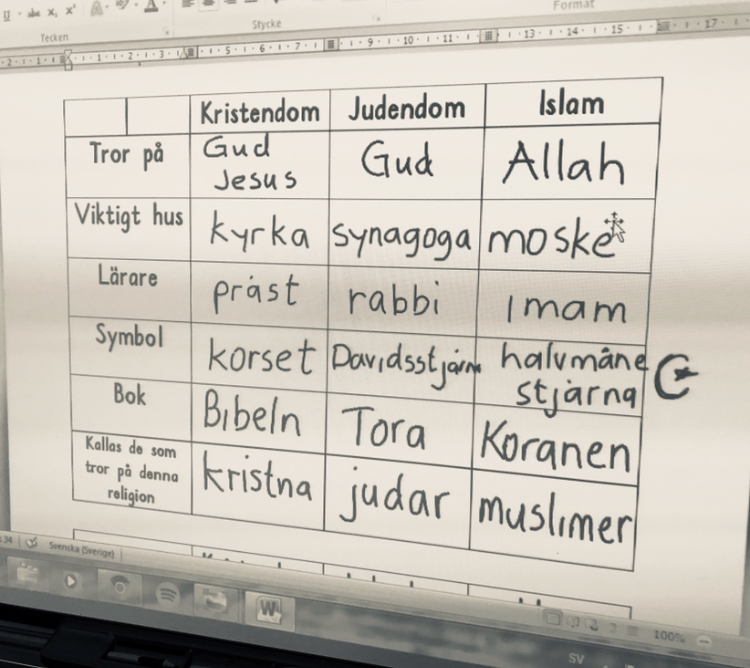 Tecken Stycke Format
2 1 1 1 2 3 5 6 7 9 10 11 13 14 15 17
Kristendom Judendom Islam
Tror på Gud Jesus Gud Allah
Viktigt hus kyrka synagoga moské
Lärare präst rabbi imam
Symbol korset Davidsstjärna halvmåne stjärna
Bok Bibeln Tora Koranen
Kallas de som tror på denna religion kristna judar muslimer
34 Svenska (Sverige)
W 100%
SV